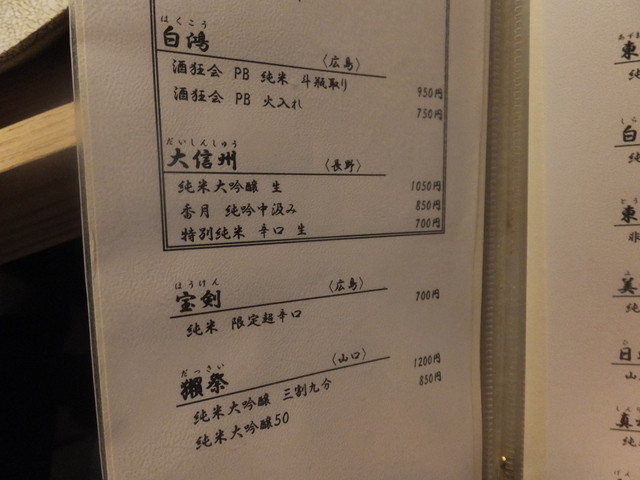 はくこう
白鴻 〈広島〉
酒狂会 PB 純米 斗瓶取り 950円
酒狂会 PB 火入れ 750円
だいしんしゅう
大信州 〈長野〉
純米大吟醸 生 1050円
香月 純吟中汲み 850円
特別純米 辛口 生 700円
ほうけん
宝剣 〈広島〉
純米 限定超辛口 700円
だっさい
獺祭 〈山口〉
純米大吟醸 三割九分 1200円
純米大吟醸50 850円
東
純
白
純
東
美
純
日
山
純